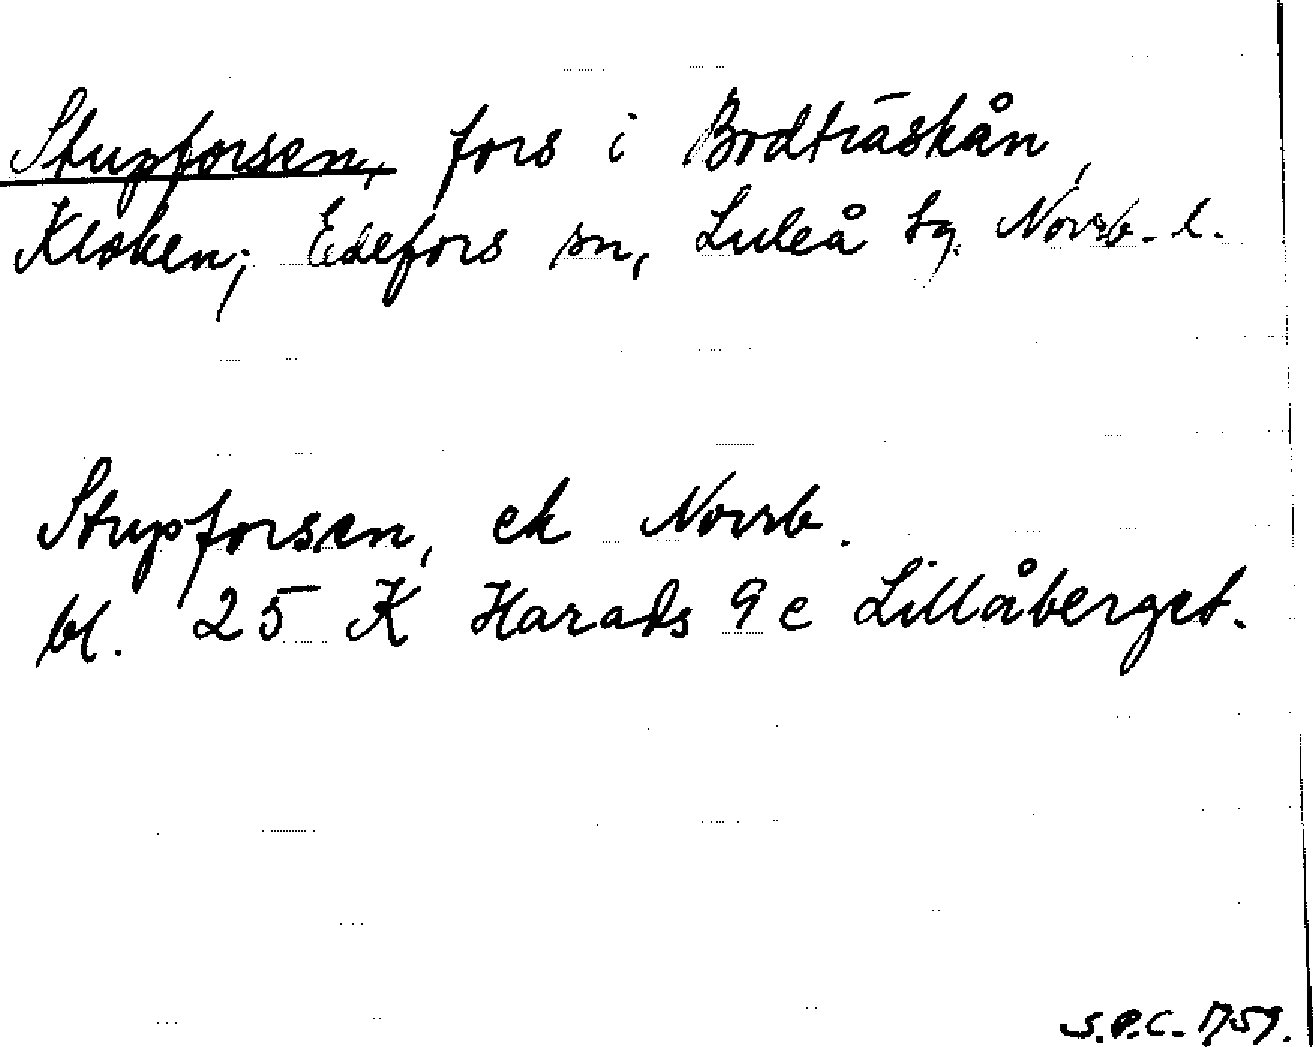 Stupforsen, fors i Bodträskån,
Kloken; Edefors sn, Luleå tg. Norrb. l.
Stupforsen, ek Norrb.
bl. 25 K Harads 9 c Lillåberget.
S.P.C. 1959.